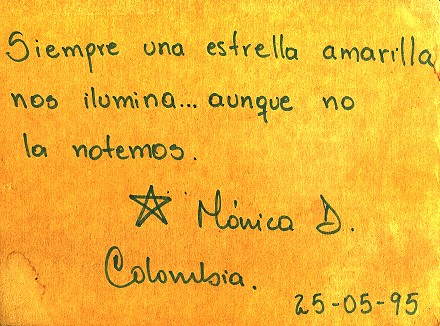 Siempre una estrella amarilla
nos ilumina... aunque no
la notemos.
Mónica D.
Colombia.
25-05-95